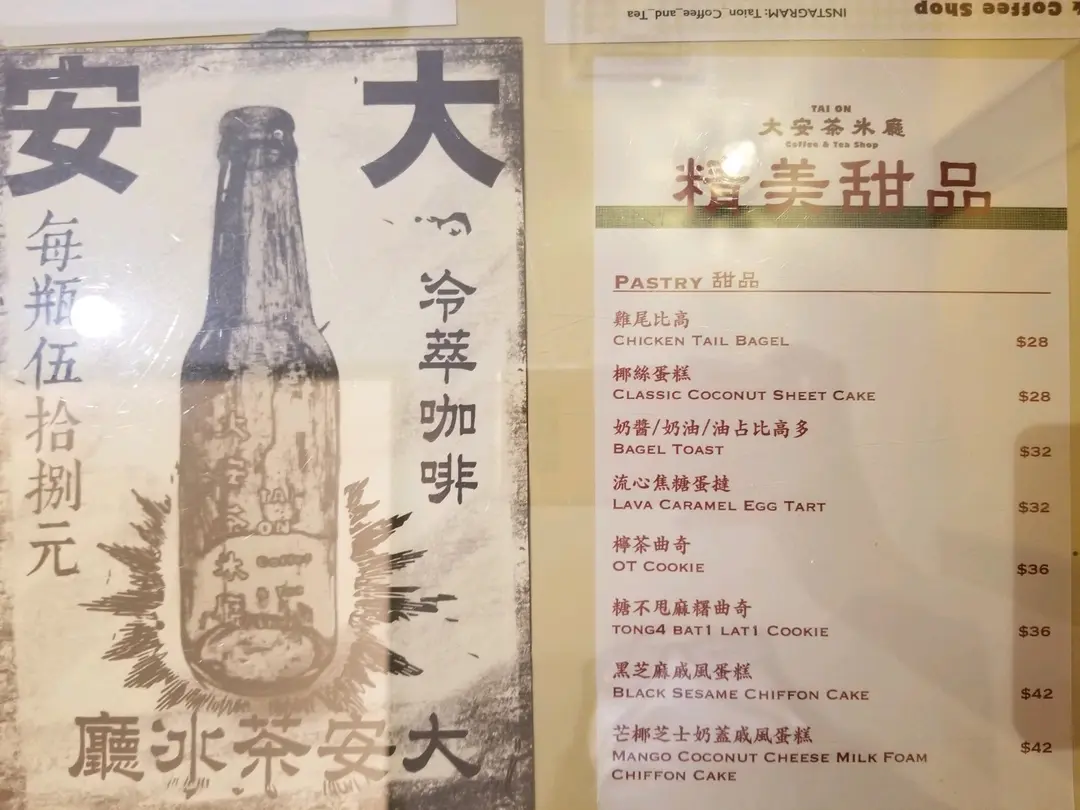 INSTAGRAM: Taion_Coffee_and_Tea
Coffee Shop
大安
冷萃咖啡
每瓶伍拾捌元
大安
TAI
ON
大安茶冰廳
TAI ON
大安茶氷廳
Coffee & Tea Shop
精美甜品
PASTRY 甜品
雞尾比高
CHICKEN TAIL BAGEL
$28
椰絲蛋糕
CLASSIC COCONUT SHEET CAKE
$28
奶醬/奶油/油占比高多
BAGEL TOAST
$32
流心焦糖蛋撻
LAVA CARAMEL EGG TART
$32
檸茶曲奇
OT COOKIE
$36
糖不甩麻糬曲奇
TONG4 BAT1 LAT1 COOKIE
$36
黑芝麻戚風蛋糕
BLACK SESAME CHIFFON CAKE
$42
芒椰芝士奶蓋戚風蛋糕
MANGO COCONUT CHEESE MILK FOAM
CHIFFON CAKE
$42